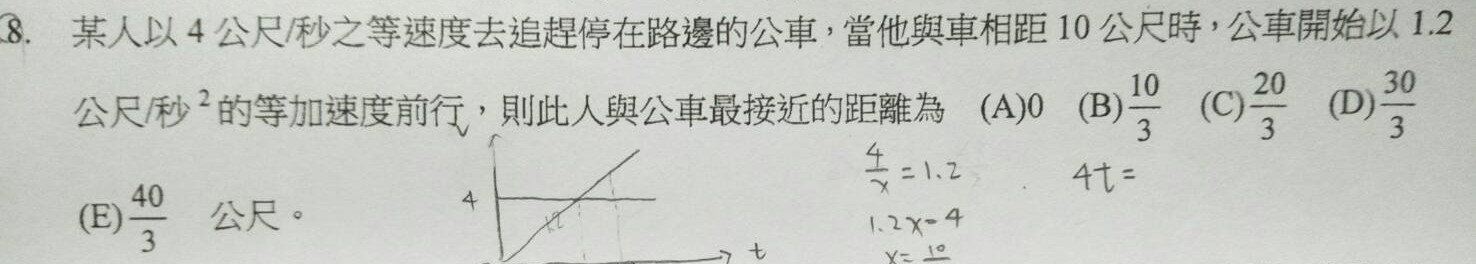 8. 某人以 4 公尺/秒之等速度去追趕停在路邊的公車，當他與車相距 10 公尺時，公車開始以 1.2
公尺/秒² 的等加速度前行，則此人與公車最接近的距離為 (A)0 (B)10/3 (C)20/3 (D)30/3
(E)40/3 公尺。
v
4
t
4/x = 1.2
1.2x = 4
x = 10
4t =